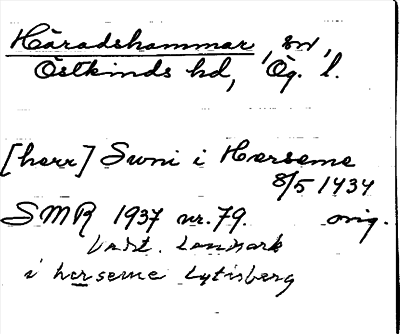 Häradshammar, sn,
Östkinds hd, Ög. l.
[herr] Swni i Hærseme
8/5 1434
SMR 1937 nr. 79. orig.
Lanmark
i hærseme Lytisberg